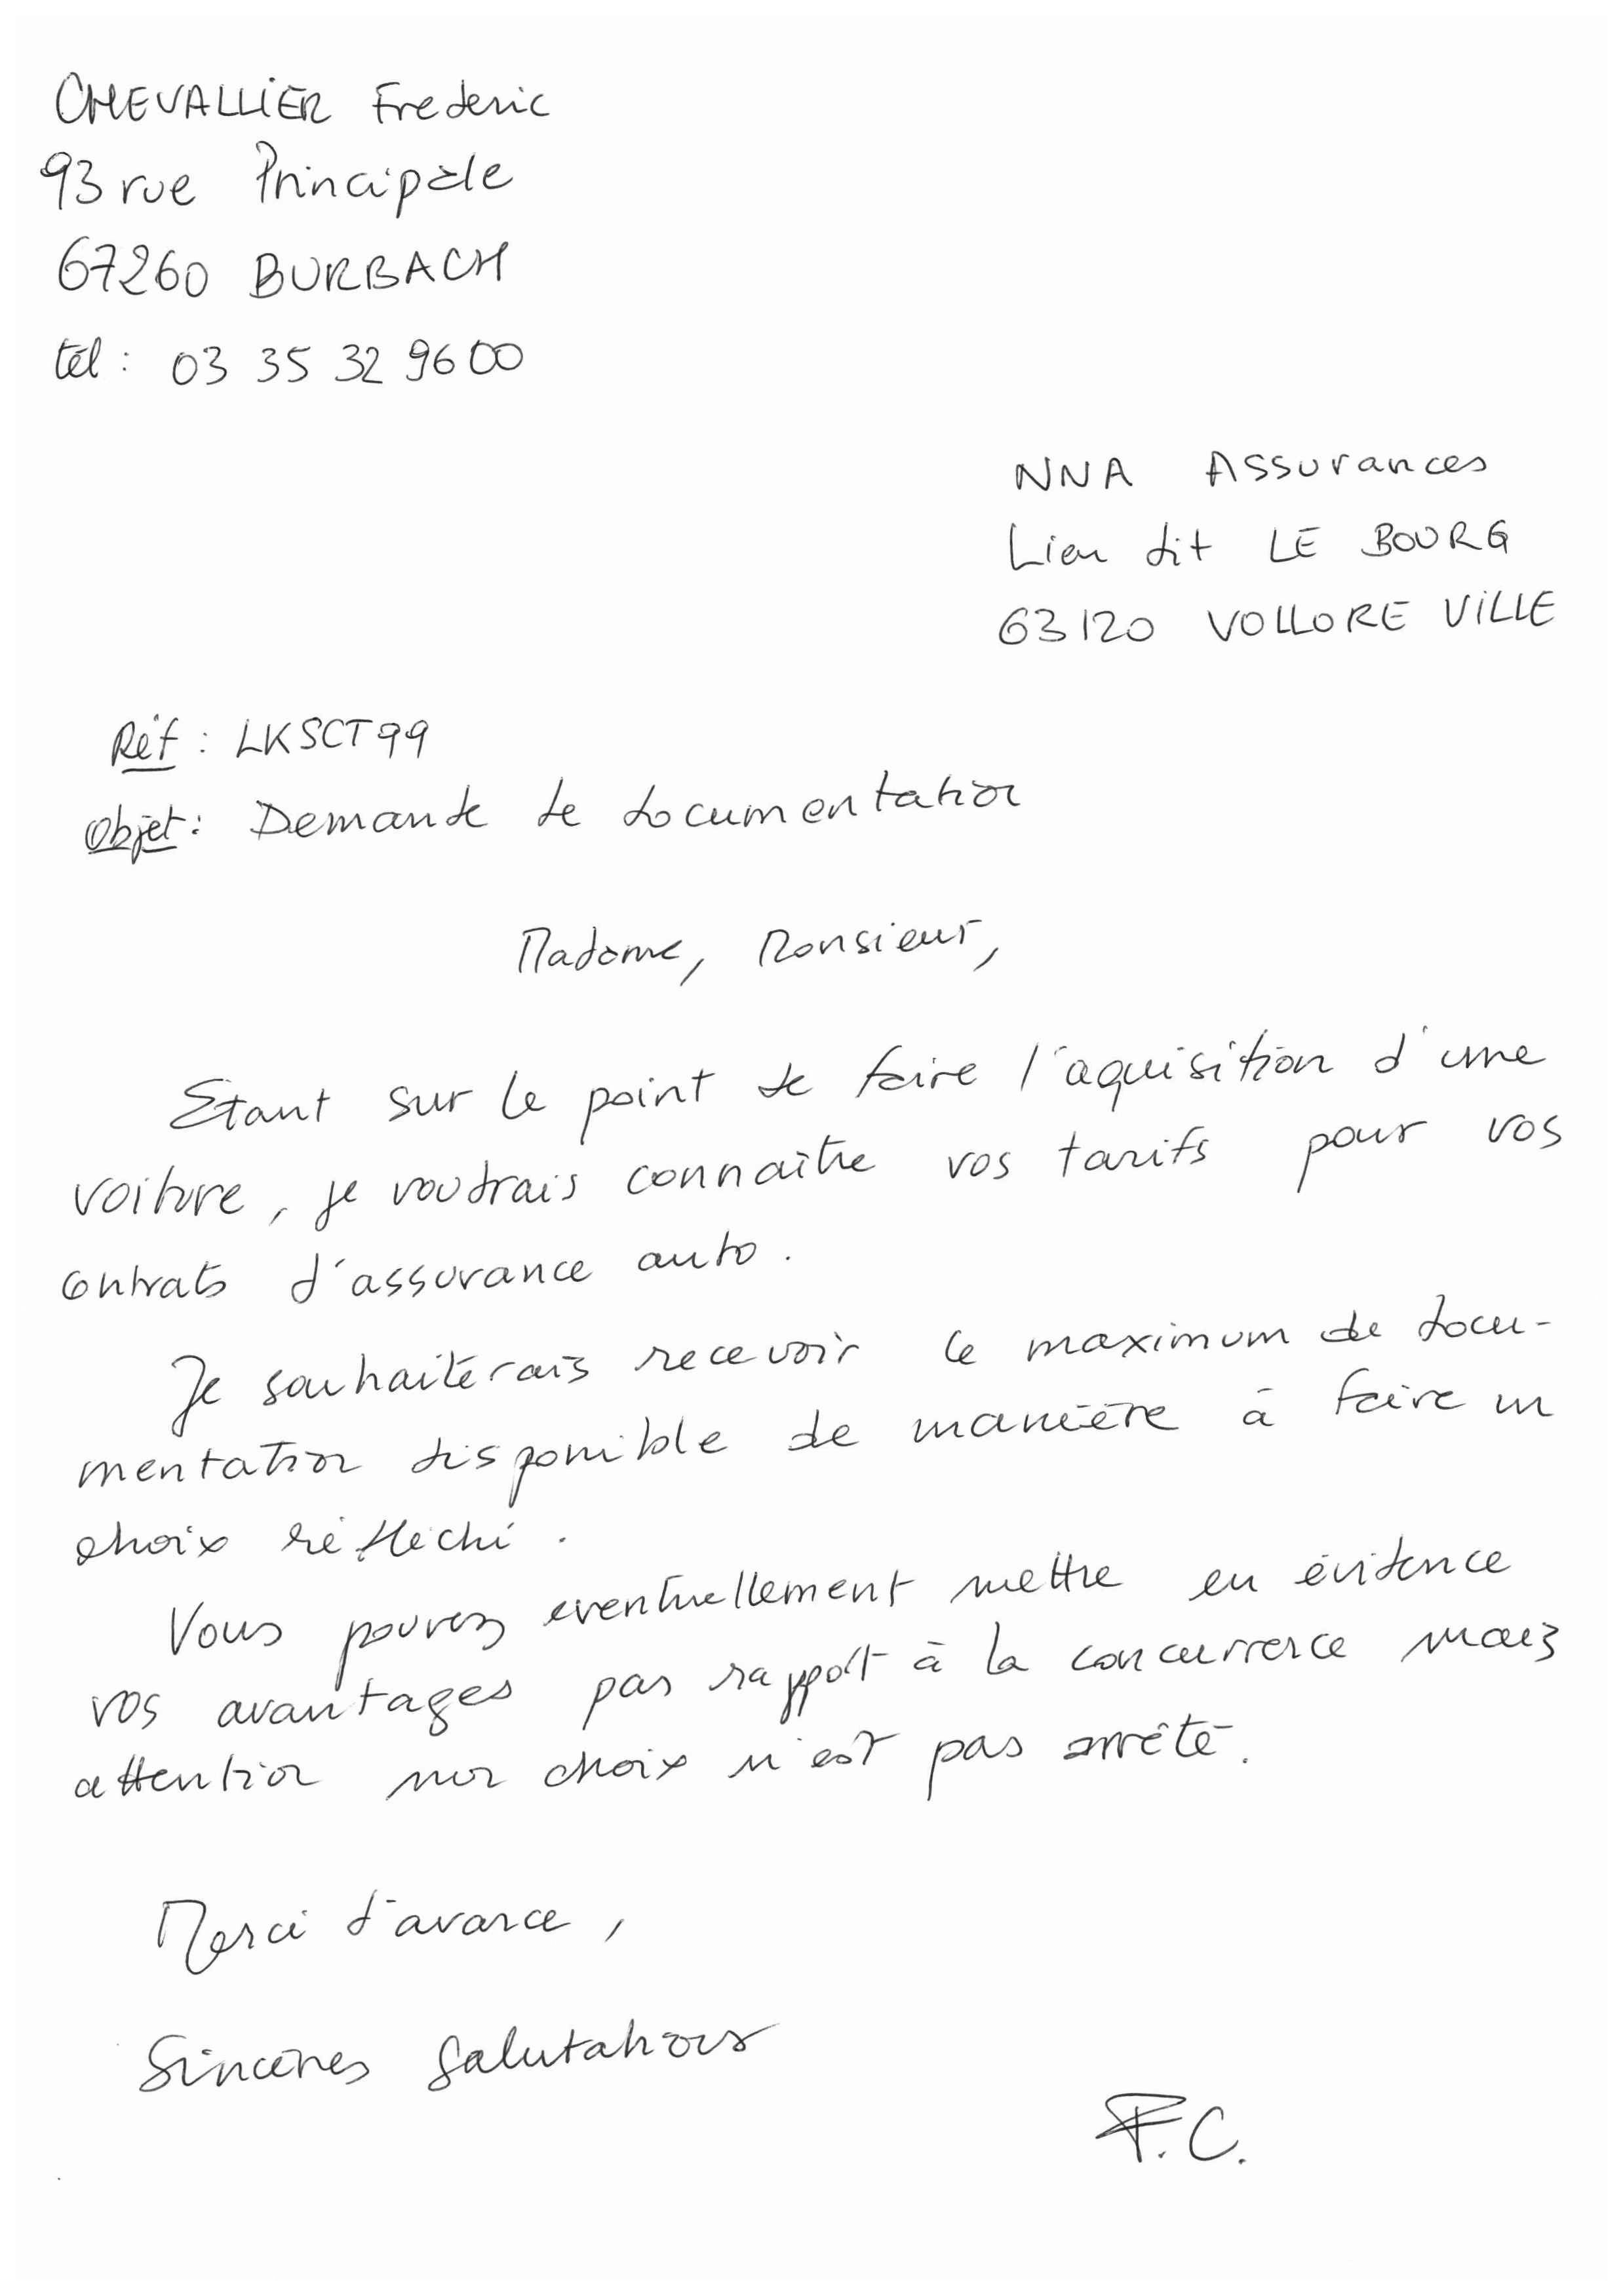 CHEVALLIER Frederic
93 rue Principale
67260 BURBACH
tél : 03 35 32 96 00
NNA Assurances
Lieu dit LE BOURG
63120 VOLLORE VILLE
Réf : LKSCT99
Objet : Demande de documentation
Madame, Monsieur,
Etant sur le point de faire l'aquisition d'une
voiture, je voudrais connaître vos tarifs pour vos
contrats d'assurance auto.
Je souhaiterais recevoir le maximum de docu-
mentation disponible de manière à faire un
choix réfléchi.
Vous pouvez eventuellement mettre en évidence
vos avantages par rapport à la concurrence mais
attention mon choix n'est pas arrêté.
Merci d'avance,
Sincères salutations
F.C.